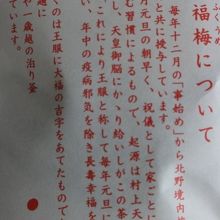 福梅について
毎年十二月の「事始め」から北野境内
と共に授与しています。
月元旦の朝早く、祝儀として家ごとに
む習慣によるもので、起源は村上天
し、天皇御脳にかゝり給いしがこの茶
、これにより王服と称して毎年元旦に
い、年中の疫病邪気を除き長寿幸福を
のは王服に大福の吉字をあてたもので
や一歳越の治り釜